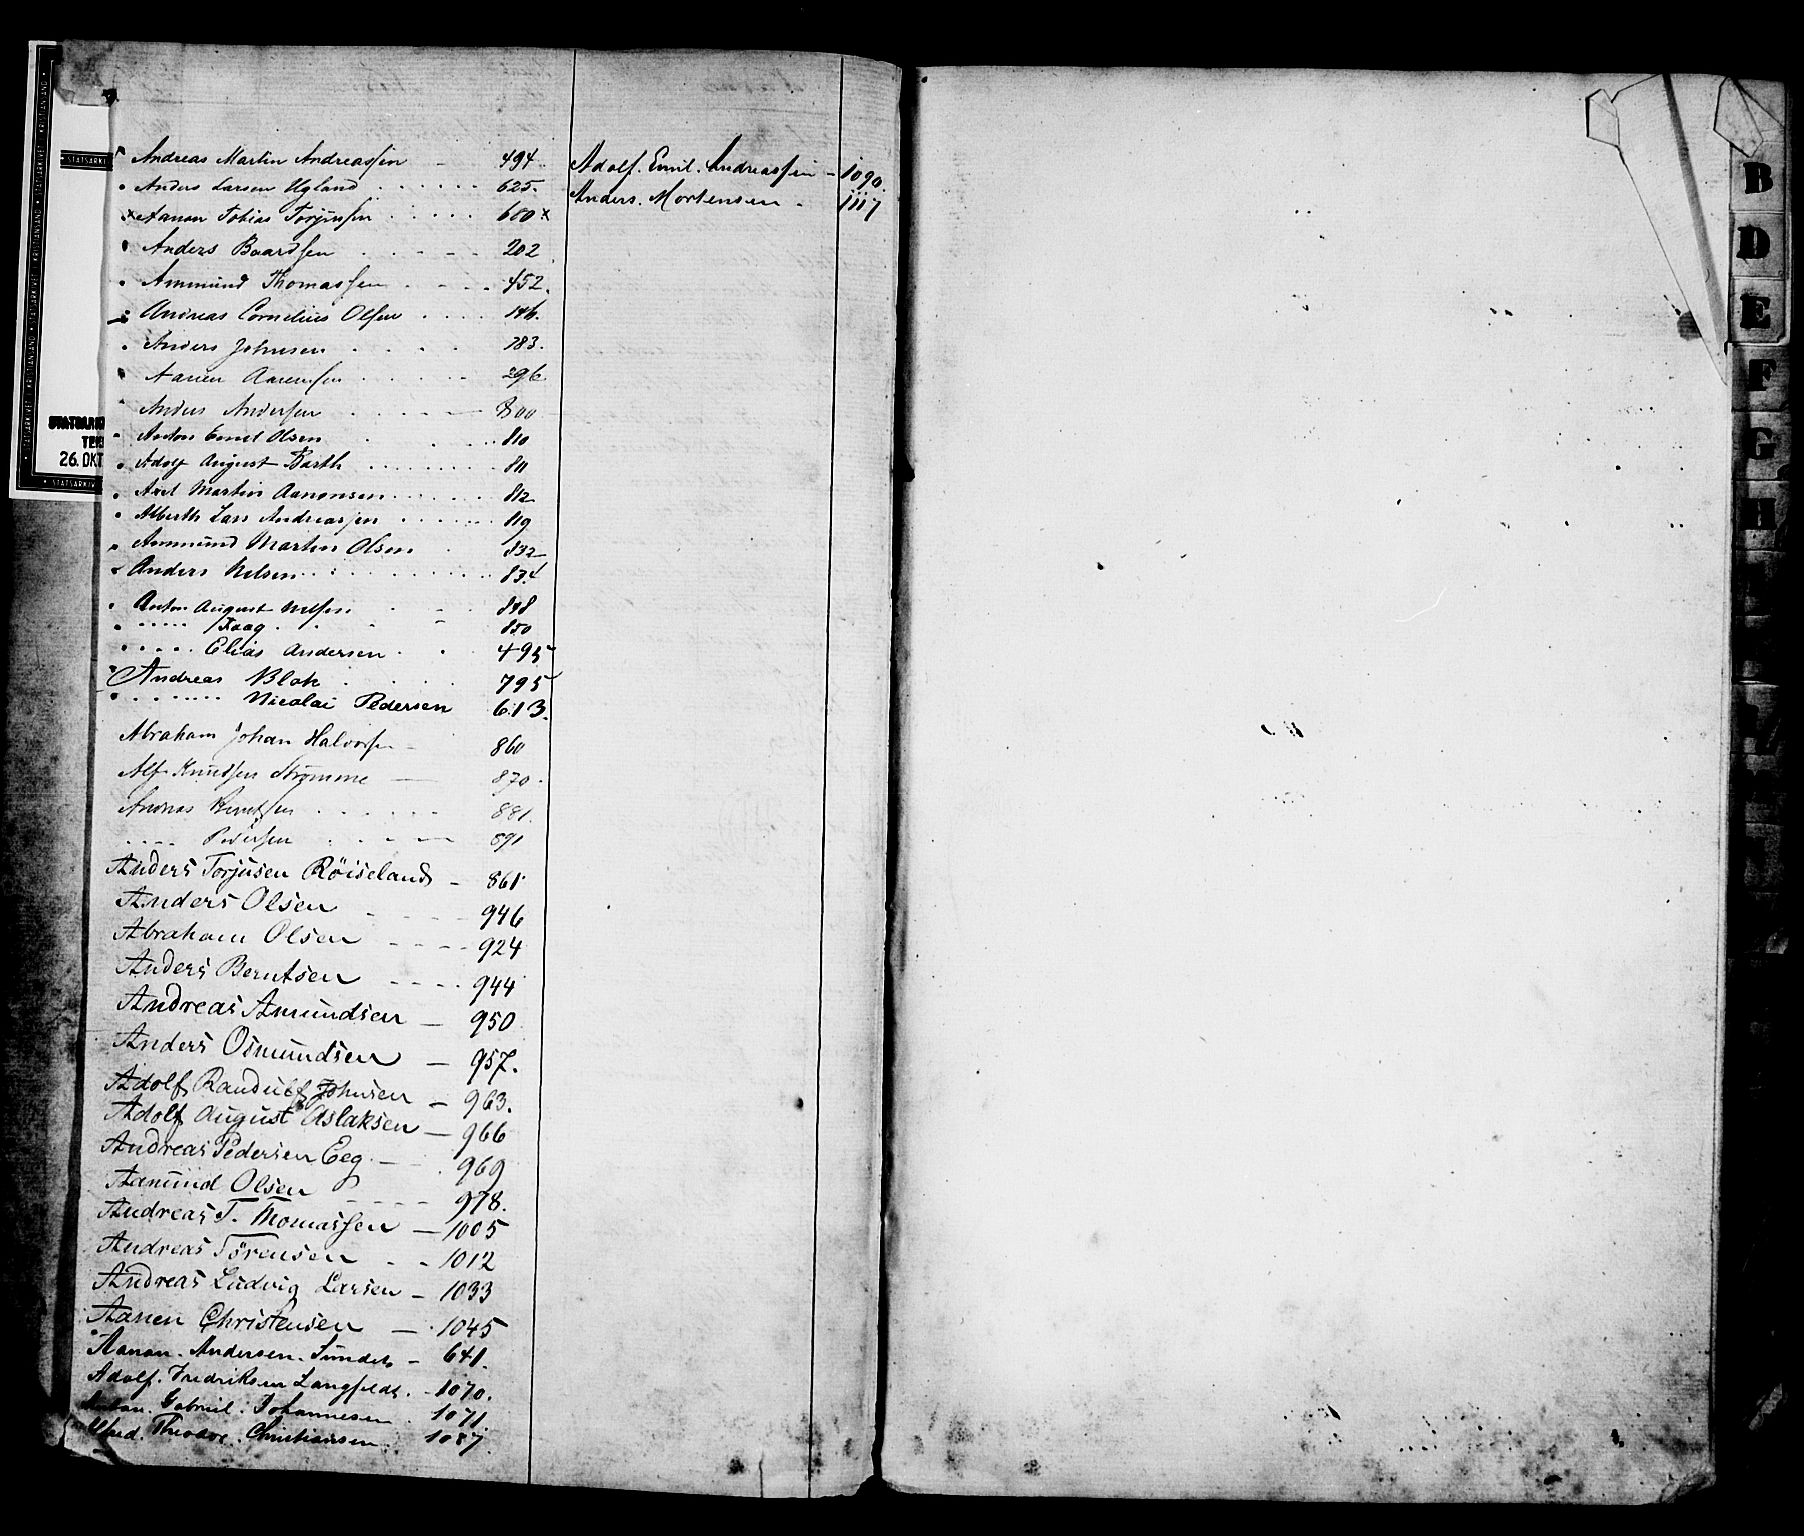 Andreas Martin Andreassen - 494
Anders Larsen Ugland . . . . . . 625.
x Aanon Tobias Torjusen . . . . . 680 x
Anders Baardsen . . - . - 202
Ammund Thomassen . . . . 452.
Andreas Cornelius Olsen . . . . 146.
Anders Johnsen . . . . 783.
Aanen Aanensen . . . . . 296
Anders Andersen . . . . 800
Anton Emil Olsen . . . 810
Adolf August Barth . . . . . . . . 811
Axel Martin Aanonsen . . . . . . 812
Alberth Lars Andreassen . . . . . . 819
Ammund Martin Olsen . 832
Anders Nilsen . . : . . . . . . . 834
Anton August Nilsen . . - 848
" " " " " Kaag . . . - 850
" " " " . Elias Andersen . . 495
Andreas Blok . . . . 795
" " " " " " Nicolai Pedersen 613.
Abraham Johan Halvorsen - 860
Alf Knudsen Strømme — 870.
Andreas Berntsen . . . . . . 881.
- - - - Pedersen . . . . - 891
Anders Torjusen Röiseland - 861.
Anders Olsen - - - - 946
Abraham Olsen - - - - 924
Anders Berntsen - - - - 944
Andreas Amundsen - 950
Anders Osmundsen - 957.
Adolf Randulf Johnsen - 963.
Adolf August Aslaksen - 966
Andreas Pedersen Eeg. - . 969
Aamund Olsen - - - - 978.
Andreas T. Thomassen - 1005
Andreas Törensen . - 1012
Andreas Ludvig Larsen - 1033
Aanen Christensen - . 1045
Aanon. Andersen. Sundet - 641.
Adolf. Fredriksen Langfeldt. - 1070.
Gabriel. Johannesen . 1071.
Alfred. Theodor. Christiansen. 1087.
Adolf. Emil. Andreassen - 1090.
Anders. Mortensen . 1117
STATSARKIVET I KRISTIANSAND
STATSARKI
26. OKT
B
D
E
F
G
H